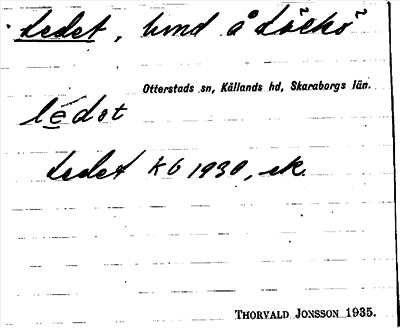 Ledet, hmd å Läckö
Otterstads sn, Kållands hd, Skaraborgs län.
lédət
Ledet KB 1930, ek.
THORVALD JONSSON 1935.